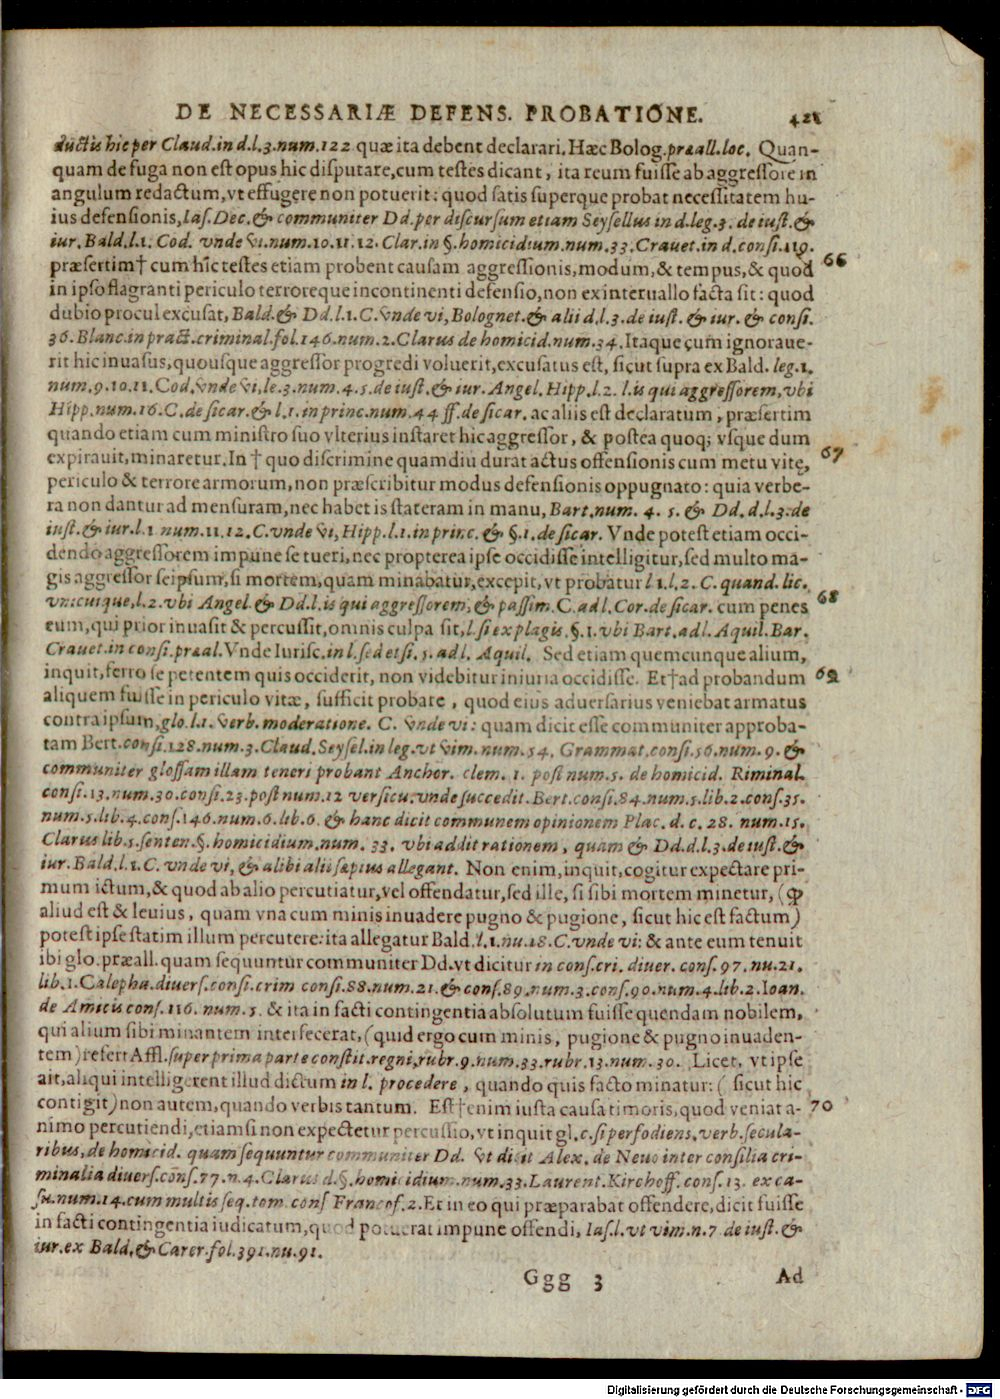 DE NECESSARIÆ DEFENS. PROBATIONE. 421
ductis hic per Claud. in d.l.3. num. 122 quæ ita debent declarari. Hæc Bolog. præall. loc. Quan-
quam de fuga non est opus hic disputare, cum testes dicant, ita reum fuisse ab aggressore in
angulum redactum, vt effugere non potuerit: quod satis superque probat necessitatem hu-
ius defensionis, Ias. Dec. & communiter Dd. per discursum etiam Seysellus in d. leg. 3. de iust. &
iur. Bald. l.1. Cod. vnde vi. num. 10. 11. 12. Clar. in §. homicidium. num. 33. Crauet. in d. consi. 119.
præsertim† cum hîc testes etiam probent causam aggressionis, modum, & tempus, & quod 66
in ipso flagranti periculo terroreque incontinenti defensio, non ex interuallo facta sit: quod
dubio procul excusat, Bald. & Dd. l.1. C. vnde vi, Bolognet. & alii d. l. 3. de iust. & iur. & consi.
36. Blanc. in pract. criminal. fol. 146. num. 2. Clarus de homicid. num. 34. Itaque cum ignoraue-
rit hic inuasus, quousque aggressor progredi voluerit, excusatus est, sicut supra ex Bald. leg. 1.
num. 9. 10. 11. Cod. vnde vi, le. 3. num. 4. 5. de iust. & iur. Angel. Hipp. l. 2. l. is qui aggressorem, vbi
Hipp. num. 16. C. de sicar. & l. 1. in princ. num. 44 ff. de sicar. ac aliis est declaratum, præsertim
quando etiam cum ministro suo vlterius instaret hic aggressor, & postea quoq; vsque dum
expirauit, minaretur. In † quo discrimine quamdiu durat actus offensionis cum metu vitę, 67
periculo & terrore armorum, non præscribitur modus defensionis oppugnato: quia verbe-
ra non dantur ad mensuram, nec habet is stateram in manu, Bart. num. 4. 5. & Dd. d. l. 3. de
iust. & iur. l. 1 num. 11. 12. C. vnde vi, Hipp. l. 1. in princ. & §. 1. de sicar. Vnde potest etiam occi-
dendo aggressorem impune se tueri, nec propterea ipse occidisse intelligitur, sed multo ma-
gis aggressor seipsum, si mortem, quam minabatur, excepit, vt probatur l 1. l. 2. C. quand. lic.
vnicuique, l. 2. vbi Angel. & Dd. l. is qui aggressorem, & passim. C. ad l. Cor. de sicar. cum penes 68
eum, qui prior inuasit & percussit, omnis culpa sit, l. si ex plagis. §. 1. vbi Bart. ad l. Aquil. Bar.
Crauet. in consi. præal. Vnde Iurisc. in l. sed etsi. 5. ad l. Aquil. Sed etiam quemcunque alium,
inquit, ferro se petentem quis occiderit, non videbitur iniuria occidisse. Et† ad probandum 69
aliquem fuisse in periculo vitæ, sufficit probare, quod eius aduersarius veniebat armatus
contra ipsum, glo. l. 1. verb. moderatione. C. vnde vi: quam dicit esse communiter approba-
tam Bert. consi. 128. num. 3. Claud. Seysel. in leg. vt vim. num. 54. Grammat. consi. 56. num. 9. &
communiter glossam illam teneri probant Anchor. clem. 1. post num. 5. de homicid. Riminal.
consi. 13. num. 30. consi. 23. post num. 12 versicu. vnde succedit. Bert. consi. 84. num. 5. lib. 2. cons. 35.
num. 5. lib. 4. cons. 146. num. 6. lib. 6. & hanc dicit communem opinionem Plac. d. c. 28. num. 15.
Clarus lib. 5. senten. §. homicidium, num. 33. vbi addit rationem, quam & Dd. d. l. 3. de iust. &
iur. Bald. l. 1. C. vnde vi, & alibi alii sæpius allegant. Non enim, inquit, cogitur expectare pri-
mum ictum, & quod ab alio percutiatur, vel offendatur, sed ille, si sibi mortem minetur, (ꝙ
aliud est & leuius, quam vna cum minis inuadere pugno & pugione, sicut hic est factum)
potest ipse statim illum percutere: ita allegatur Bald. l. 1. nu. 18. C. vnde vi: & ante eum tenuit
ibi glo. præall. quam sequuntur communiter Dd. vt dicitur in cons. cri. diuer. cons. 97. nu. 21.
lib. 1. Calepha. diuers. consi. crim consi. 88. num. 21. & cons. 89. num. 3. cons. 90. num. 4. lib. 2. Ioan.
de Amicis cons. 116. num. 5. & ita in facti contingentia absolutum fuisse quendam nobilem,
qui alium sibi minantem interfecerat, (quid ergo cum minis, pugione & pugno inuaden-
tem) refert Affl. super prima parte constit. regni, rubr. 9. num. 33. rubr. 13. num. 30. Licet, vt ipse
ait, aliqui intelligerent illud dictum in l. procedere, quando quis facto minatur: (sicut hic
contigit) non autem, quando verbis tantum. Est† enim iusta causa timoris, quod veniat a- 70
nimo percutiendi, etiamsi non expectetur percussio, vt inquit gl. c. si perfodiens, verb. secula-
ribus, de homicid. quam sequuntur communiter Dd. vt dicit Alex. de Neuo inter consilia cri-
minalia diuers. cons. 77. n. 4. Clarus d. §. homicidium. num. 33. Laurent. Kirchoff. cons. 13. ex ca-
su. num. 14. cum multis seq. tom. cons Francof. 2. Et in eo qui præparabat offendere, dicit fuisse
in facti contingentia iudicatum, quod potuerat impune offendi, Ias. l. vt vim. n. 7 de iust. &
iur. ex Bald. & Carer. fol. 391. nu. 91.
Ggg 3 Ad
Digitalisierung gefördert durch die Deutsche Forschungsgemeinschaft - DFG